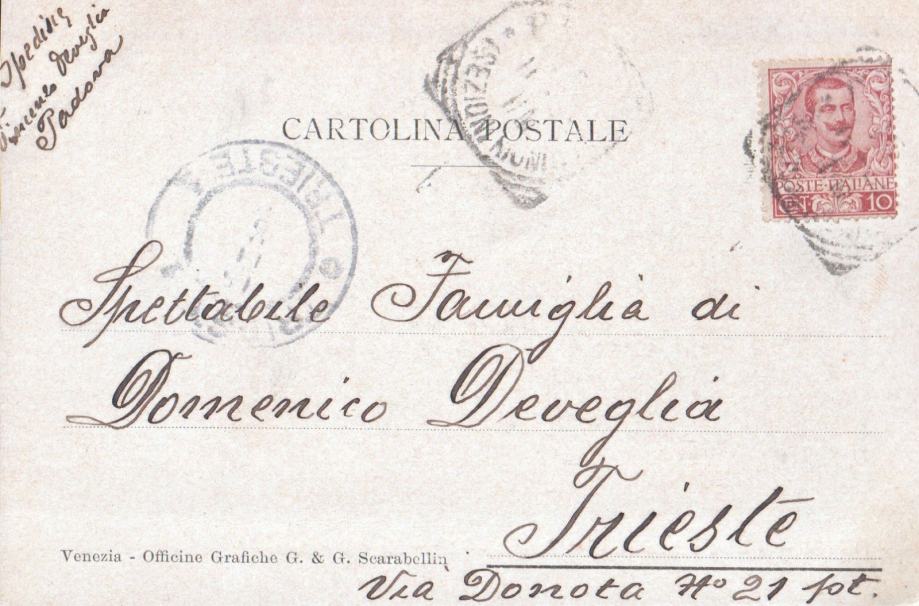 Spedisce
Vincenzo Deveglia
Padova
CARTOLINA POSTALE
POSTE·ITALIANE
CENT. 10
TRIESTE
Spettabile Famiglia di
Domenico Deveglia
Trieste
Venezia - Officine Grafiche G. & G. Scarabellin
Via Donota No 21 pt.